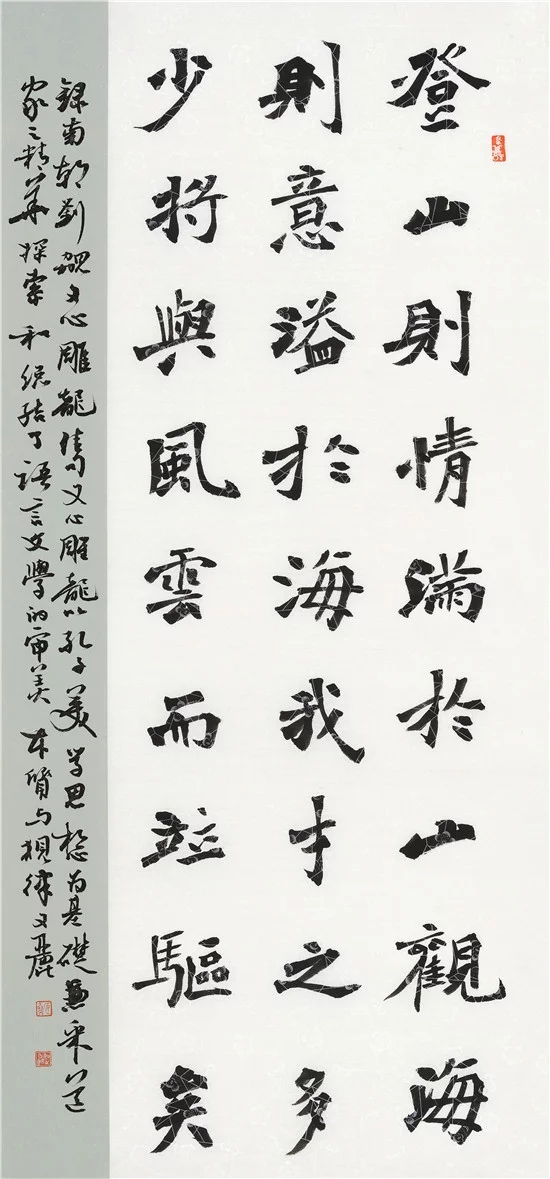 登山則情滿於山觀海
則意溢於海我才之多
少將與風雲而竝驅矣
錄南朝劉勰文心雕龍句文心雕龍以孔子美學思想為基礎兼采道
家之精華探索和總結了語言文學的審美本質與規律文麗